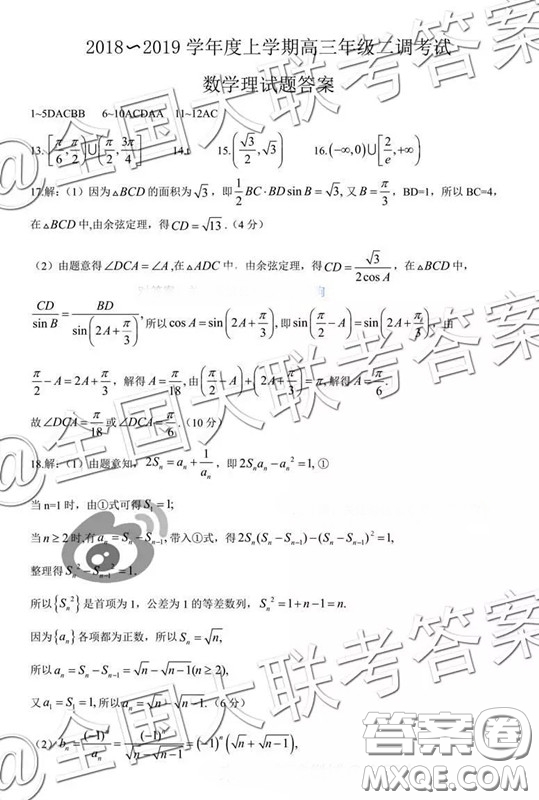 2018～2019 学年度上学期高三年级二调考试
数学理试题答案
1~5DACBB 6~10ACDAA 11~12AC
13. [π/6, π/2)∪(π/2, 3π/4] 14. 15. (√3/2, √3) 16. (-∞,0)∪[2/e, +∞)
17.解:（1）因为△BCD 的面积为√3, 即 1/2 BC·BD sin B = √3, 又 B = π/3, BD=1, 所以 BC=4,
在△BCD 中,由余弦定理，得 CD = √13.（4 分）
（2）由题意得∠DCA=∠A,在△ADC 中．由余弦定理，得 CD = √3/(2cos A)，在△BCD 中,
CD/sin B = BD/sin(2A+π/3), 所以 cos A = sin(2A+π/3), 即 sin(π/2-A) = sin(2A+π/3), 由
π/2 - A = 2A + π/3，解得 A = π/18, 由(π/2 - A)+(2A+π/3) = π, 解得 A = π/6.
故∠DCA = π/18 或∠DCA = π/6.（10 分）
18.解:（1）由题意知，2Sₙ = aₙ + 1/aₙ，即 2Sₙaₙ - aₙ² = 1, ①
当 n=1 时，由①式可得 S₁ = 1;
当 n ≥ 2 时,有 aₙ = Sₙ - Sₙ₋₁, 带入①式，得 2Sₙ(Sₙ - Sₙ₋₁) - (Sₙ - Sₙ₋₁)² = 1,
整理得 Sₙ² - Sₙ₋₁² = 1.
所以{Sₙ²}是首项为 1，公差为 1 的等差数列，Sₙ² = 1 + n - 1 = n.
因为{aₙ}各项都为正数，所以 Sₙ = √n,
所以 aₙ = Sₙ - Sₙ₋₁ = √n - √n-1 (n ≥ 2),
又 a₁ = S₁ = 1, 所以 aₙ = √n - √n-1.（6 分）
（2）bₙ = (-1)ⁿ/aₙ = (-1)ⁿ/(√n - √n-1) = (-1)ⁿ(√n + √n-1),
@全国大联考答案
@全国大联考答案
@全国大联考答案
答案圈
MXQE.COM